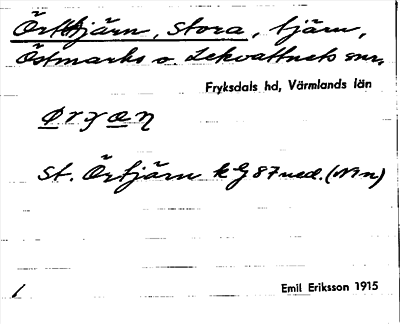 Örttjärn, Stora, tjärn,
Östmarks o. Lekvattnets snr,
Fryksdals hd, Värmlands län
St. Örtjärn k G 87 ned. (N n)
1
Emil Eriksson 1915